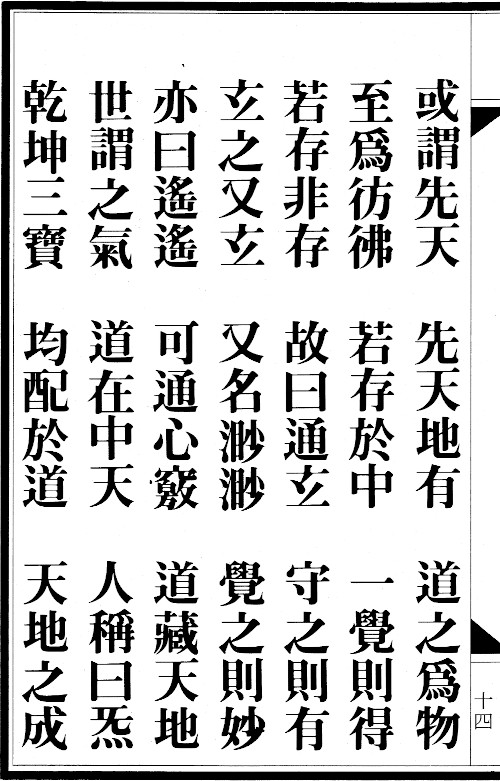 或謂先天 先天地有 道之爲物
至爲彷彿 若存於中 一覺則得
若存非存 故曰通玄 守之則有
玄之又玄 又名渺渺 覺之則妙
亦曰遙遙 可通心竅 道藏天地
世謂之氣 道在中天 人稱曰炁
乾坤三寶 均配於道 天地之成
十四